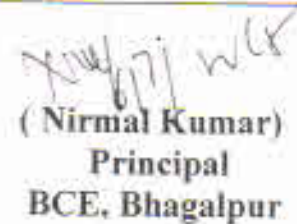 ( Nirmal Kumar)
Principal
BCE, Bhagalpur